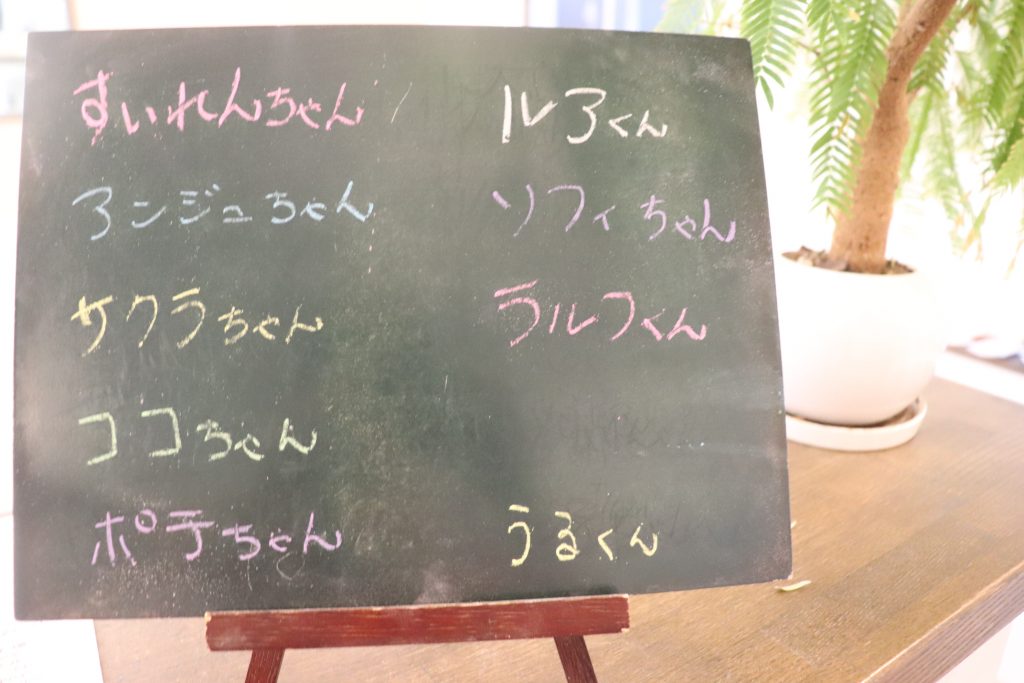 すいれんちゃん
アンジュちゃん
サクラちゃん
ココちゃん
ポテちゃん
ルアくん
ソフィちゃん
ラルフくん
うるくん